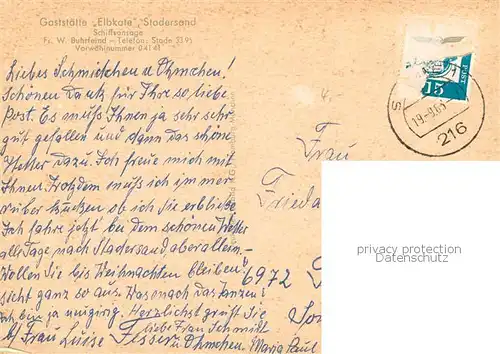 Gaststätte „Elbkate" Stadersand
Schiffsansage
Fr. W. Buhrfeind – Telefon: Stade 3395
Vorwählnummer 04141
Liebes Schmittchen u Öhmchen!
Schönen Dank für Ihre so liebe
Post. Es muß Ihnen ja sehr sehr
gut gefallen und dann das schöne
Wetter dazu. Ich freue mich mit
Ihnen. Trotzdem muß ich immer
rüber kucken ob ich sie erblicke
Ich fahre jetzt bei dem schönen Wetter
alle Tage nach Stadersand aber allein.–
Wollen Sie bis Weihnachten bleiben?
sieht ganz so aus. Was macht das Tanzen?
Ich bin ja neugirig. Herzlichst grüßt Sie
liebe Frau Schmidt
Frau Luise Tesser u. Öhmchen. Maria Paul
Frau
Frieda
6972
15
POST
19.-9.63
216
privacy protection
Datenschutz